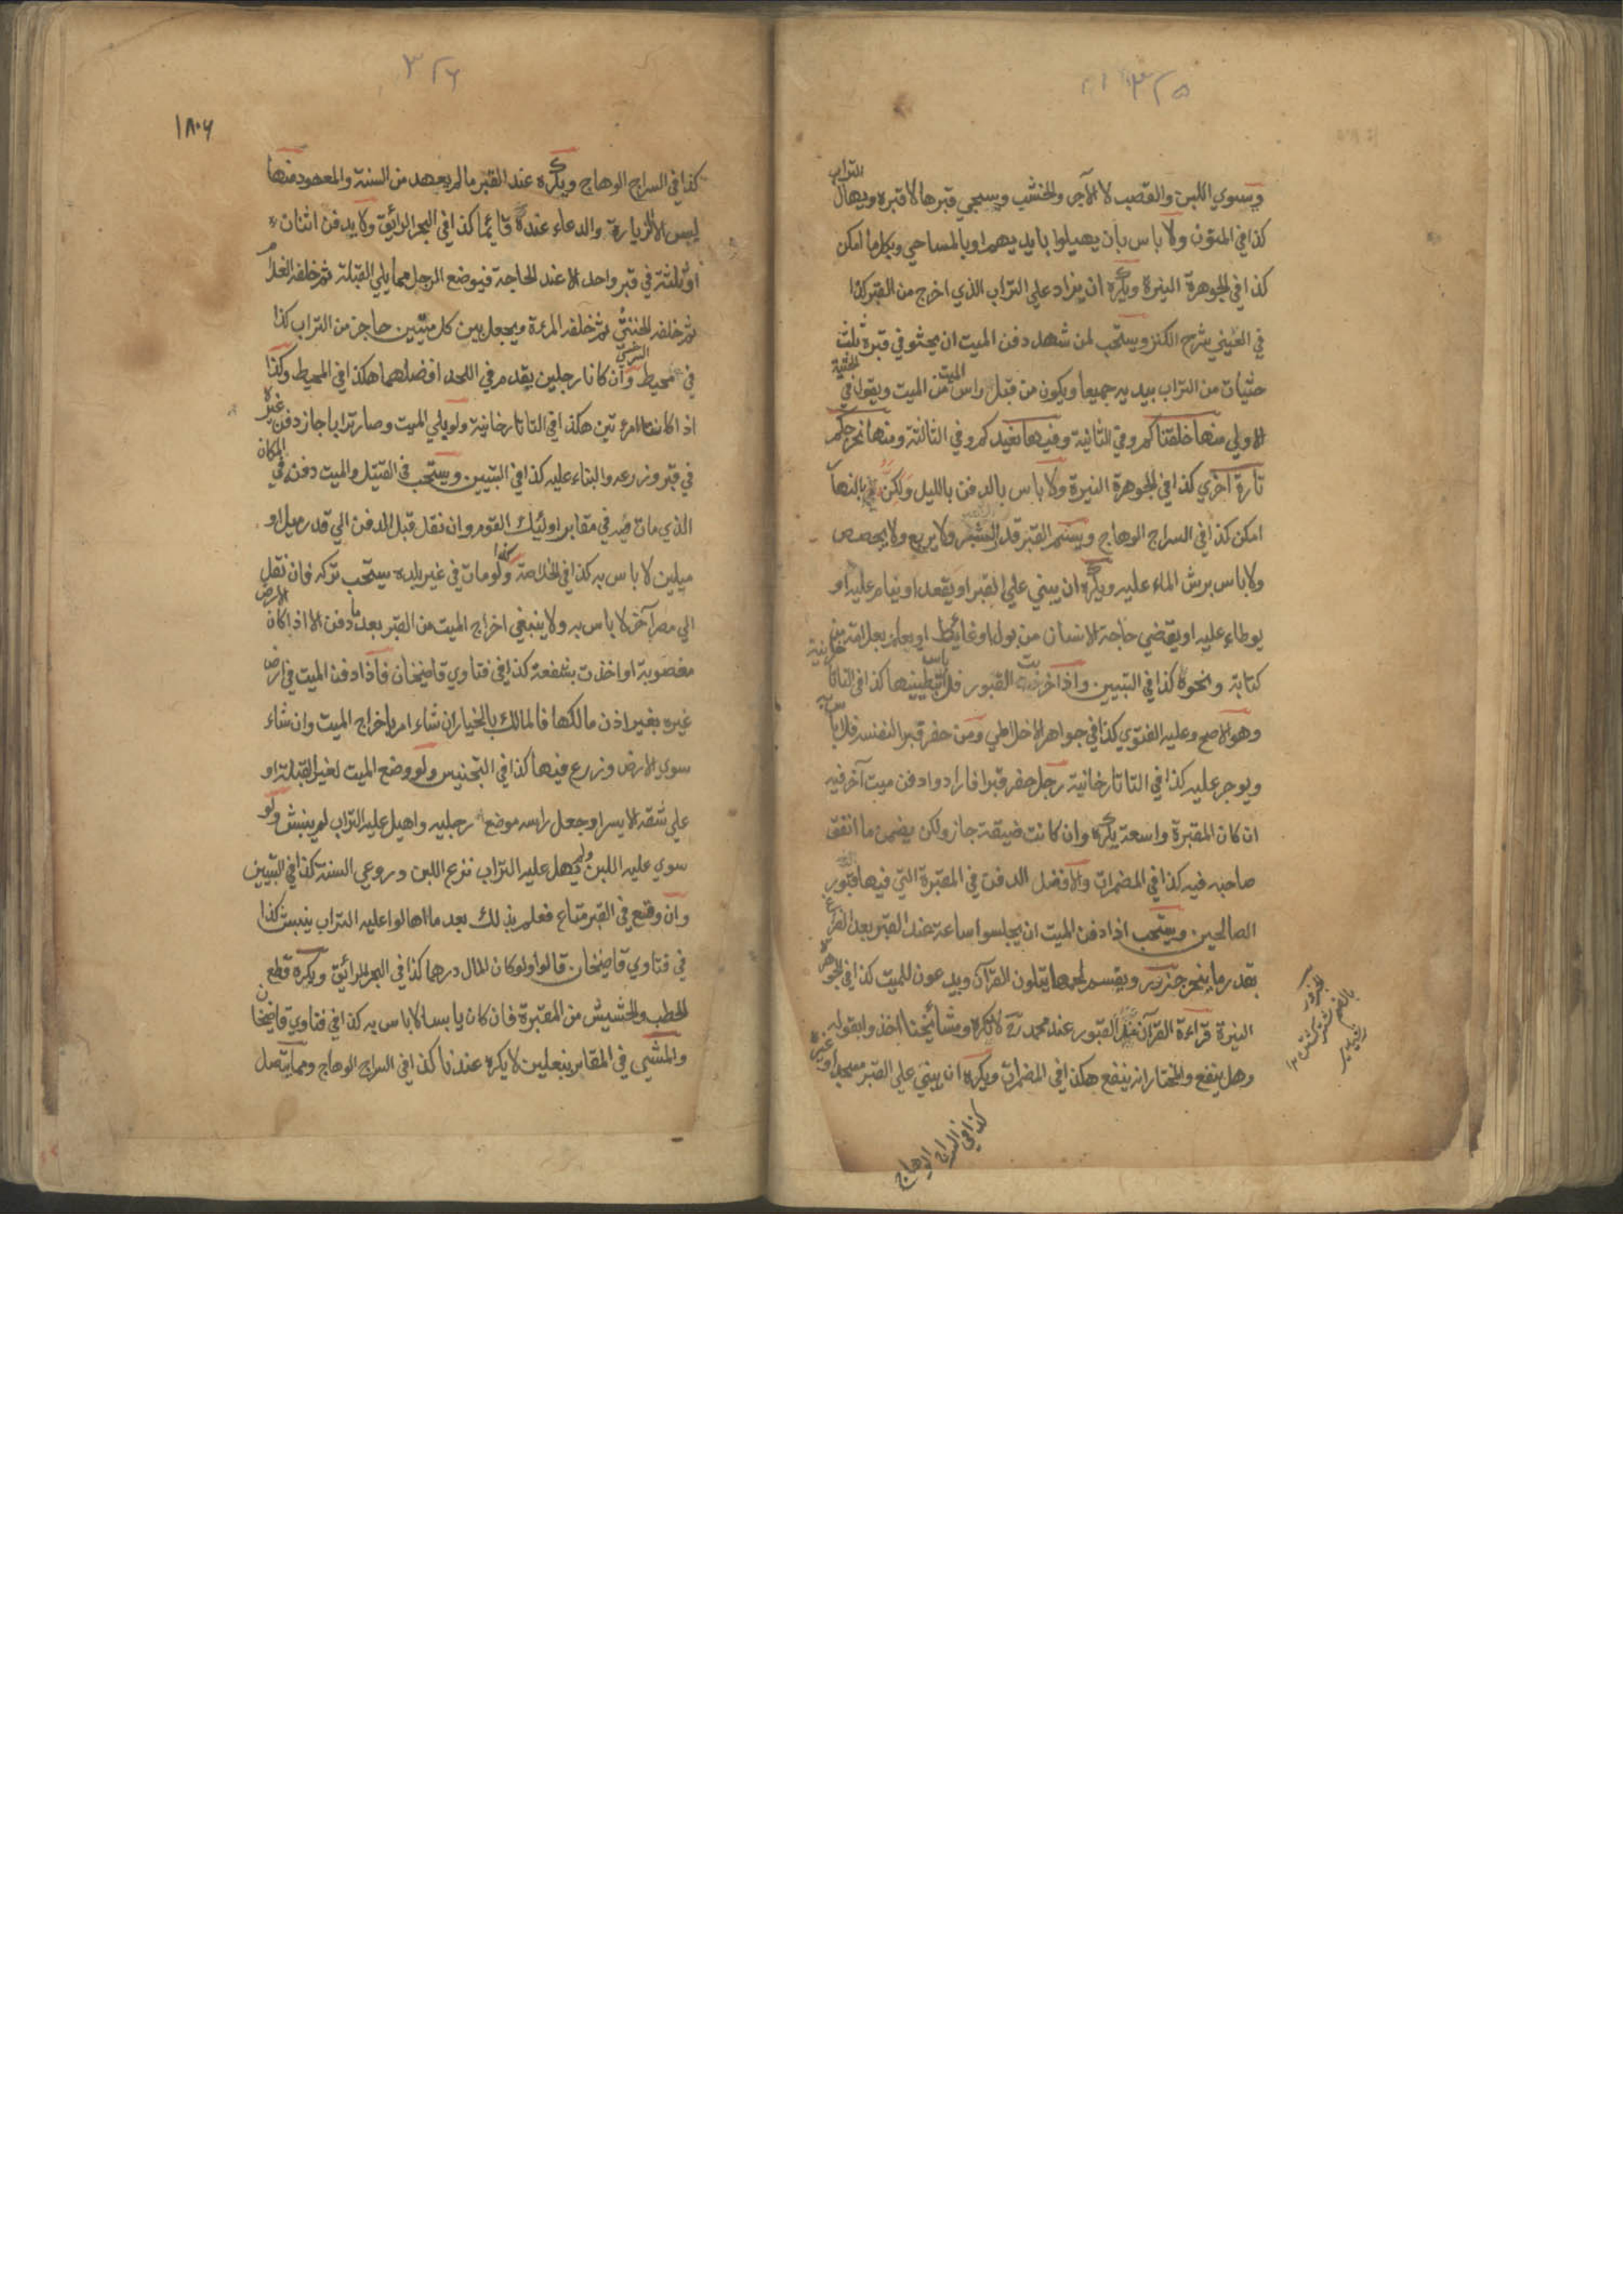 ٣٢٥
ويسوي اللبن والقصب لا الآجر والخشب ويسجي قبرها لا قبره ويهال التراب
كذا في المتون ولا باس بان يهيلوا بايديهم او بالمساحي وبكل ما امكن
كذا في الجوهرة النيرة ويكره ان يزاد علي التراب الذي اخرج من القبر كذا
في العيني شرح الكنز ويستحب لمن شهد دفن الميت ان يحثو في قبره ثلث
حثيات من التراب بيديه جميعا ويكون من قبل راس الميت ويقول في الحثية
الاولي منها خلقناكم وفي الثانية وفيها نعيدكم وفي الثالثة ومنها نخرجكم
تارة اخري كذا في الجوهرة النيرة ولا باس بالدفن بالليل ولكن بالنهار
امكن كذا في السراج الوهاج ويسنم القبر قدر الشبر ولا يربع ولا يجصص
ولا باس برش الماء عليه ويكره ان يبني علي القبر او يقعد او ينام عليه او
يوطاء عليه او يقضي حاجة الانسان من بول او غائط او يعلم بعلامة من
كتابة ونحوه كذا في التبيين واذا خربت القبور فلا باس بتطيينها كذا في التاتارخانية
وهو الاصح وعليه الفتوي كذا في جواهر الاخلاطي ومن حفر قبرا لنفسه فلا باس به
ويوجر عليه كذا في التاتارخانية رجل حفر قبرا فارادوا دفن ميت آخر فيه
ان كان المقبرة واسعة يكره وان كانت ضيقة جاز ولكن يضمن ما انفق
صاحبه فيه كذا في المضمرات والافضل الدفن في المقبرة التي فيها قبور
الصالحين ويستحب اذا دفن الميت ان يجلسوا ساعة عند القبر بعد الفراغ
بقدر ما ينحر جزور ويقسم لحمها يتلون القرآن ويدعون للميت كذا في الجوهرة
النيرة قراءة القرآن عند القبور عند محمد رح لا تكره ومشائخنا اخذوا بقوله
وهل ينفع والمختار انه ينفع هكذا في المضمرات ويكره ان يبني علي القبر مسجد او غيره
كذا في السراج الوهاج
٣٢٦
١٨٠٦
كذا في السراج الوهاج ويكره عند القبر ما لم يعهد من السنة والمعهود منها
ليس الا الزيارة والدعاء عنده قائما كذا في البحر الرائق ولا يدفن اثنان
او ثلثة في قبر واحد الا عند الحاجة فيوضع الرجل مما يلي القبلة ثم خلفه الغلام
ثم خلفه الخنثي ثم خلفه المرءة ويجعل بين كل ميتين حاجز من التراب كذا
في محيط السرخسي وان كانا رجلين يقدم في اللحد افضلهما هكذا في المحيط وكذا
اذا كانتا امرءتين هكذا في التاتارخانية ولو بلي الميت وصار ترابا جاز دفن غيره
في قبره وزرعه والبناء عليه كذا في التبيين ويستحب في القتيل والميت دفنه في المكان
الذي مات فيه في مقابر اولئك القوم وان نقل قبل الدفن الي قدر ميل او
ميلين لا باس به كذا في الخلاصة وكذا لو مات في غير بلده يستحب تركه فان نقل
الي مصر آخر لا باس به ولا ينبغي اخراج الميت من القبر بعد ما دفن الا اذا كان الارض
مغصوبة او اخذت بشفعة كذا في فتاوي قاضيخان فاذا دفن الميت في ارض
غيره بغير اذن مالكها فالمالك بالخيار ان شاء امر باخراج الميت وان شاء
سوي الارض وزرع فيها كذا في التجنيس ولو وضع الميت لغير القبلة او
علي شقه الايسر او جعل راسه موضع رجليه واهيل عليه التراب لم ينبش ولو
سوي عليه اللبن ولم يهل عليه التراب نزع اللبن وروعي السنة كذا في التبيين
وان وقع في القبر متاع فعلم بذلك بعد ما اهالوا عليه التراب ينبش كذا
في فتاوي قاضيخان قالوا ولو كان المال درهما كذا في البحر الرائق ويكره قطع
الحطب والحشيش من المقبرة فان كان يابسا لا باس به كذا في فتاوي قاضيخان
والمشي في المقابر بنعلين لا يكره عندنا كذا في السراج الوهاج ومما يتصل